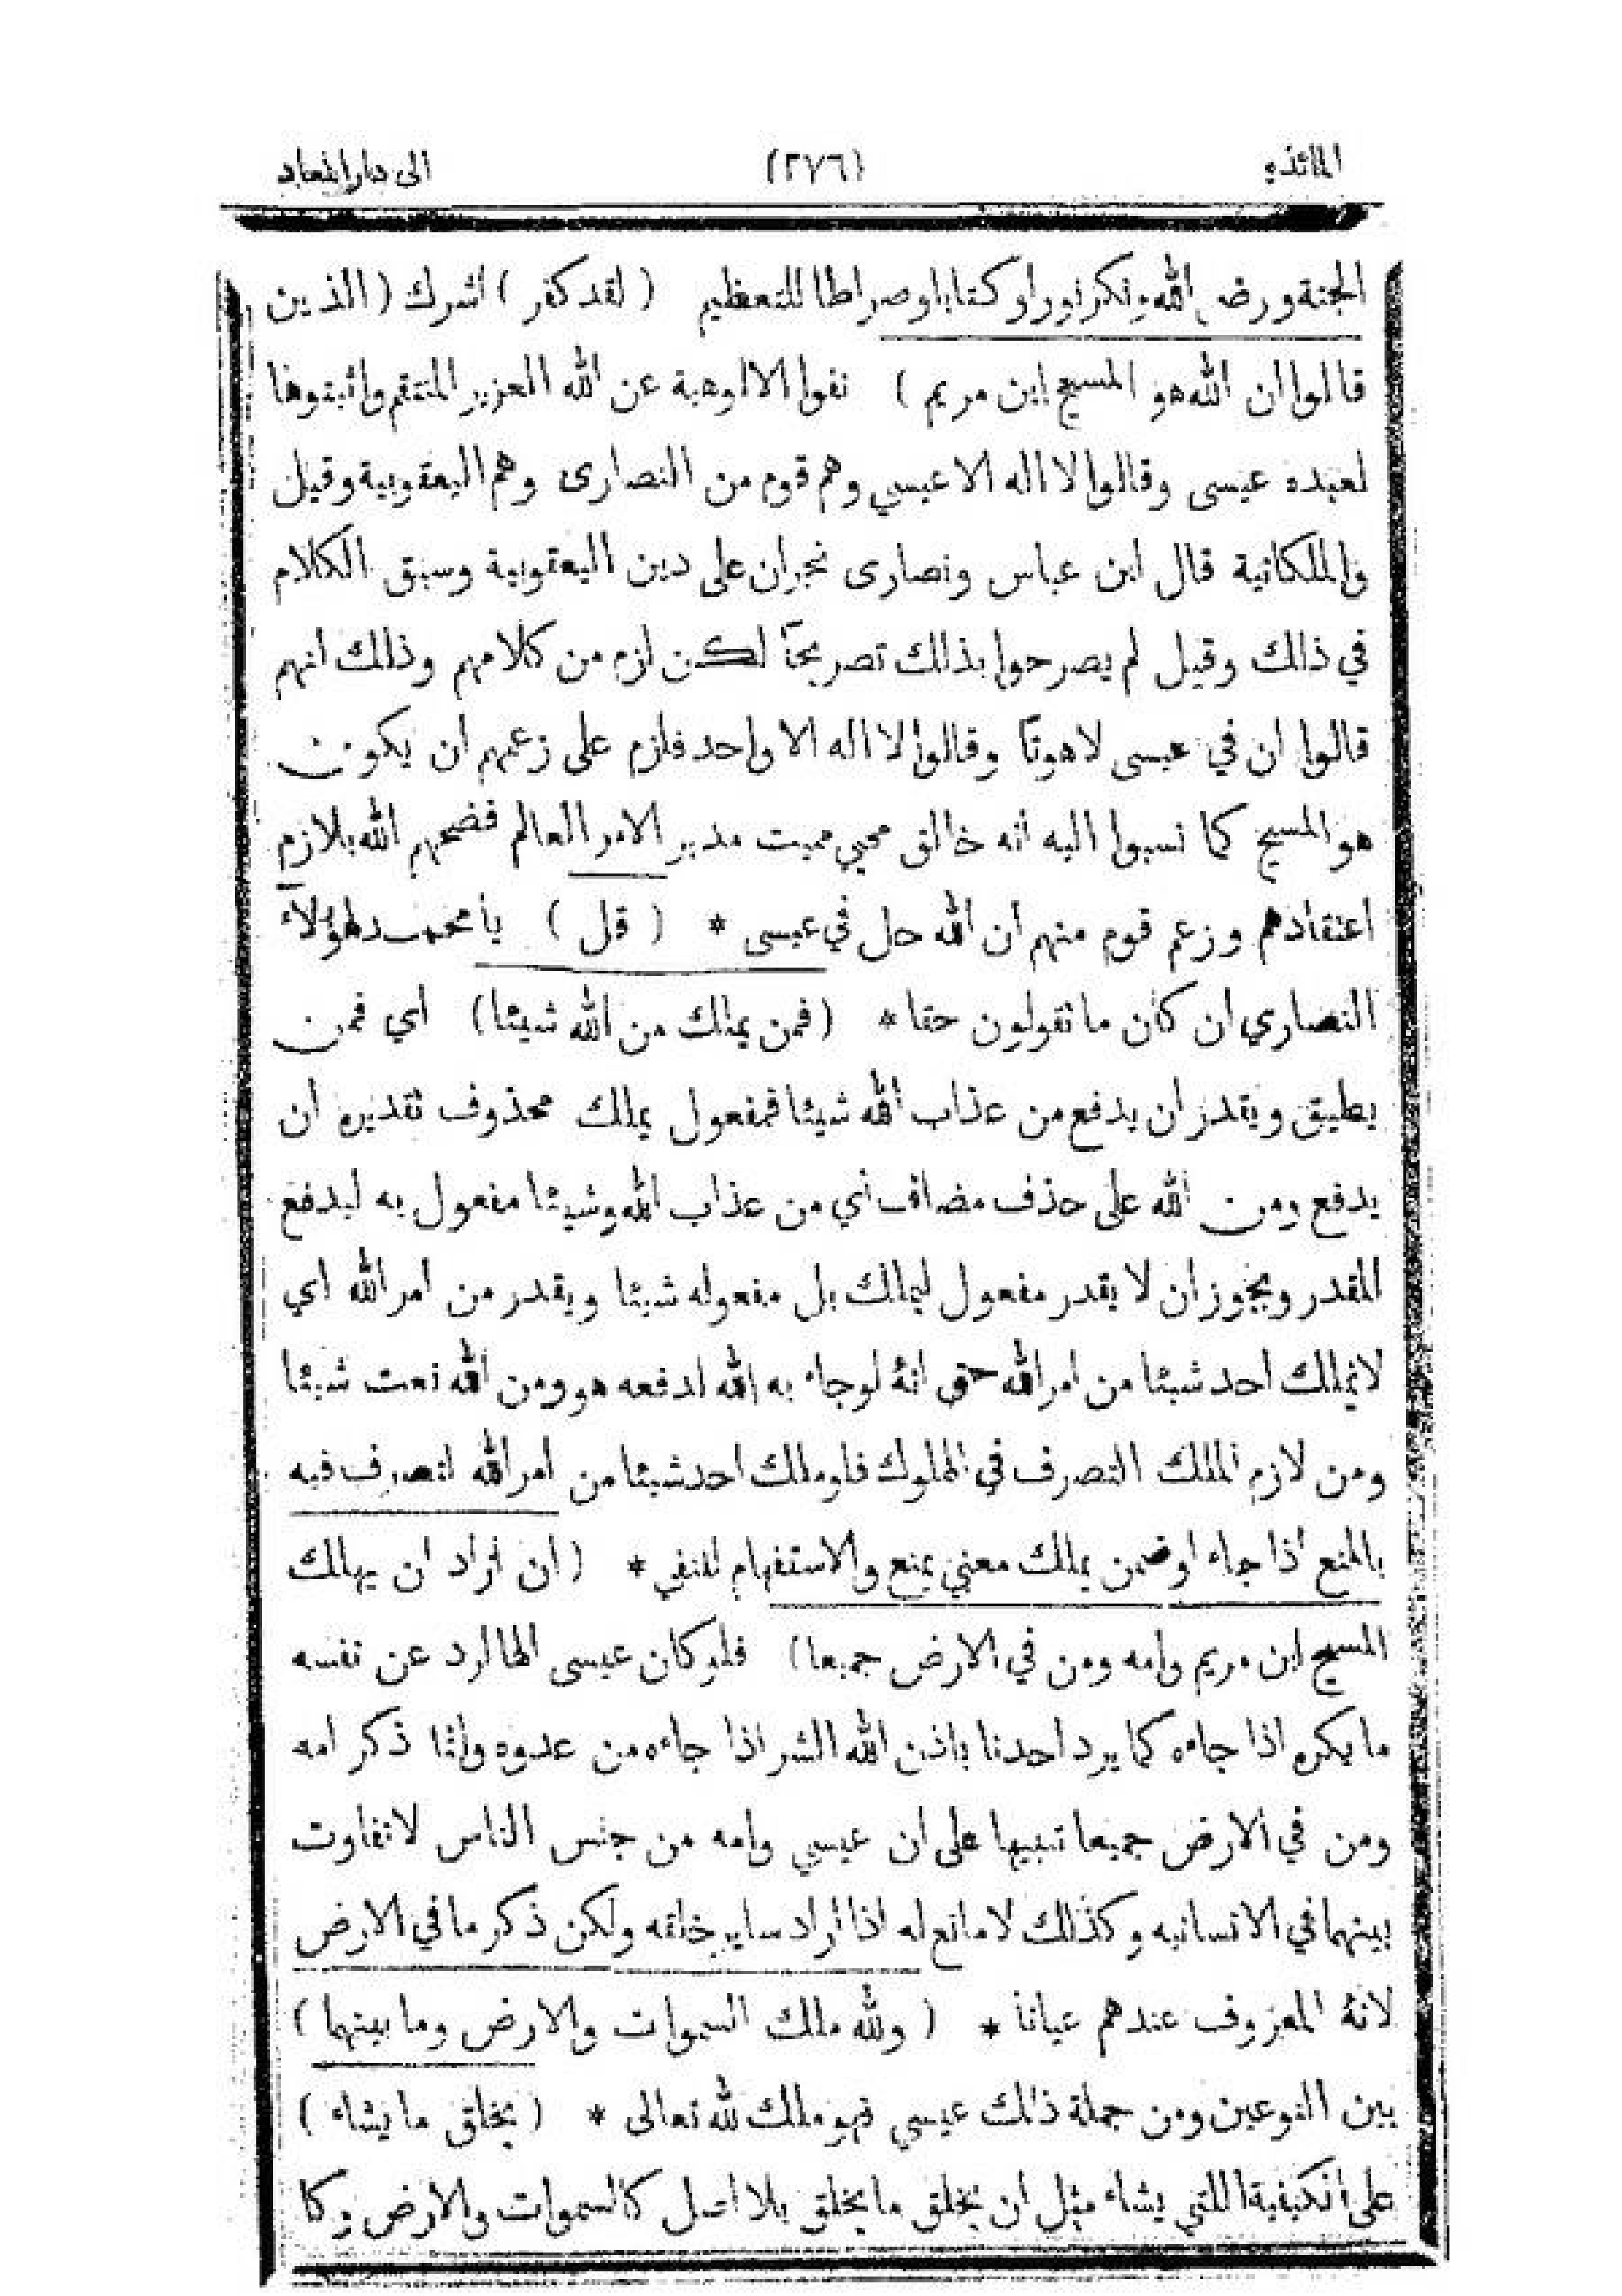 المائدة (٢٧٦) الى دار المعاد
الجنة ورضى الله ونكر نورا وكتابا وصراطا للتعظيم ( لقد كفر ) أشرك ( الذين
قالوا ان الله هو المسيح ابن مريم ) نفوا الالوهية عن الله العزيز المنتقم وأثبتوها
لعبده عيسى وقالوا لا اله الا عيسي وهم قوم من النصارى وهم اليعقوبية وقيل
والملكانية قال ابن عباس ونصارى نجران على دين اليعقوبية وسبق الكلام
في ذلك وقيل لم يصرحوا بذلك تصريحاً لكن لزم من كلامهم وذلك انهم
قالوا ان في عيسى لاهوتاً وقالوا لا اله الا واحد فلزم على زعمهم ان يكون
هو المسيح كما نسبوا اليه أنه خالق محيي مميت مدبر الامر العالم ففضحهم الله بلازم
اعتقادهم وزعم قوم منهم أن الله حل في عيسى * ( قل ) يا محمد لهؤلآء
النصاري ان كان ما تقولون حقا * (فمن يملك من الله شيئا) اي فمن
يطيق ويقدر ان يدفع من عذاب الله شيئا فمفعول يملك محذوف تقديره ان
يدفع ومن الله على حذف مضاف أي من عذاب الله وشيئا مفعول به ليدفع
المقدر ويجوز ان لا يقدر مفعول ليملك بل مفعوله شيئا ويقدر من امر الله اي
لا يملك احد شيئا من امر الله حتى انه لو جاء به الله لدفعه هو ومن الله نعت شيئا
ومن لازم الملك التصرف في المملوك فلو ملك احد شيئا من امر الله لتصرف فيه
بالمنع اذا جاء او ضمن يملك معني يمنع والاستفهام للنفي * ( ان اراد ان يهلك
المسيح ابن مريم وامه ومن في الارض جميعا) فلو كان عيسى الها لرد عن نفسه
ما يكره اذا جاءه كما يرد احدنا باذن الله الشر اذا جاءه من عدوه وانما ذكر امه
ومن في الارض جميعا تنبيها على ان عيسي وامه من جنس الناس لا تفاوت
بينهما في الانسانيه وكذلك لا مانع له اذا اراد ساير خلقه ولكن ذكر ما في الارض
لانه المعروف عندهم عيانا * ( ولله ملك السموات والارض وما بينهما )
بين النوعين ومن جملة ذلك عيسي فهو ملك لله تعالى * ( يخلق ما يشاء )
على الكيفية اللتي يشاء مثل ان يخلق ما يخلق بلا اصل كالسموات والارض وكا